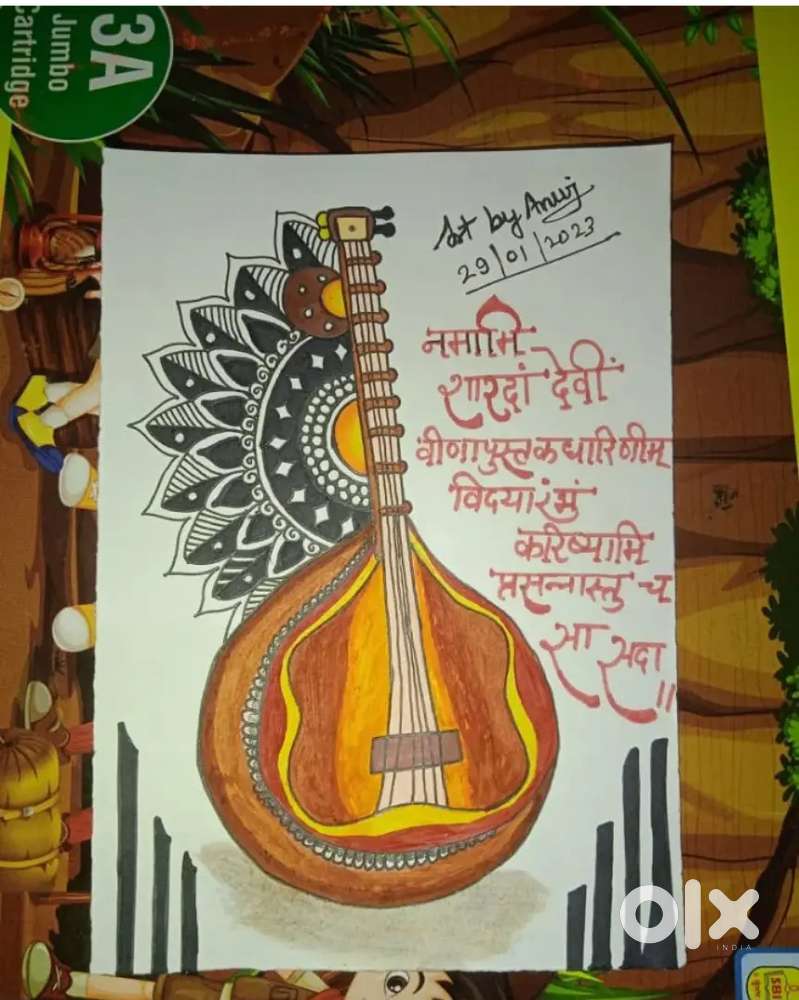 3A
Jumbo
Cartridge
Art by Anuj
29/01/2023
नमामि
शारदां देवीं
वीणापुस्तकधारिणीम
विदयारंमुं
करिष्यामि
प्रसन्नास्तु च
सा सदा ॥
olx
INDIA
SBI